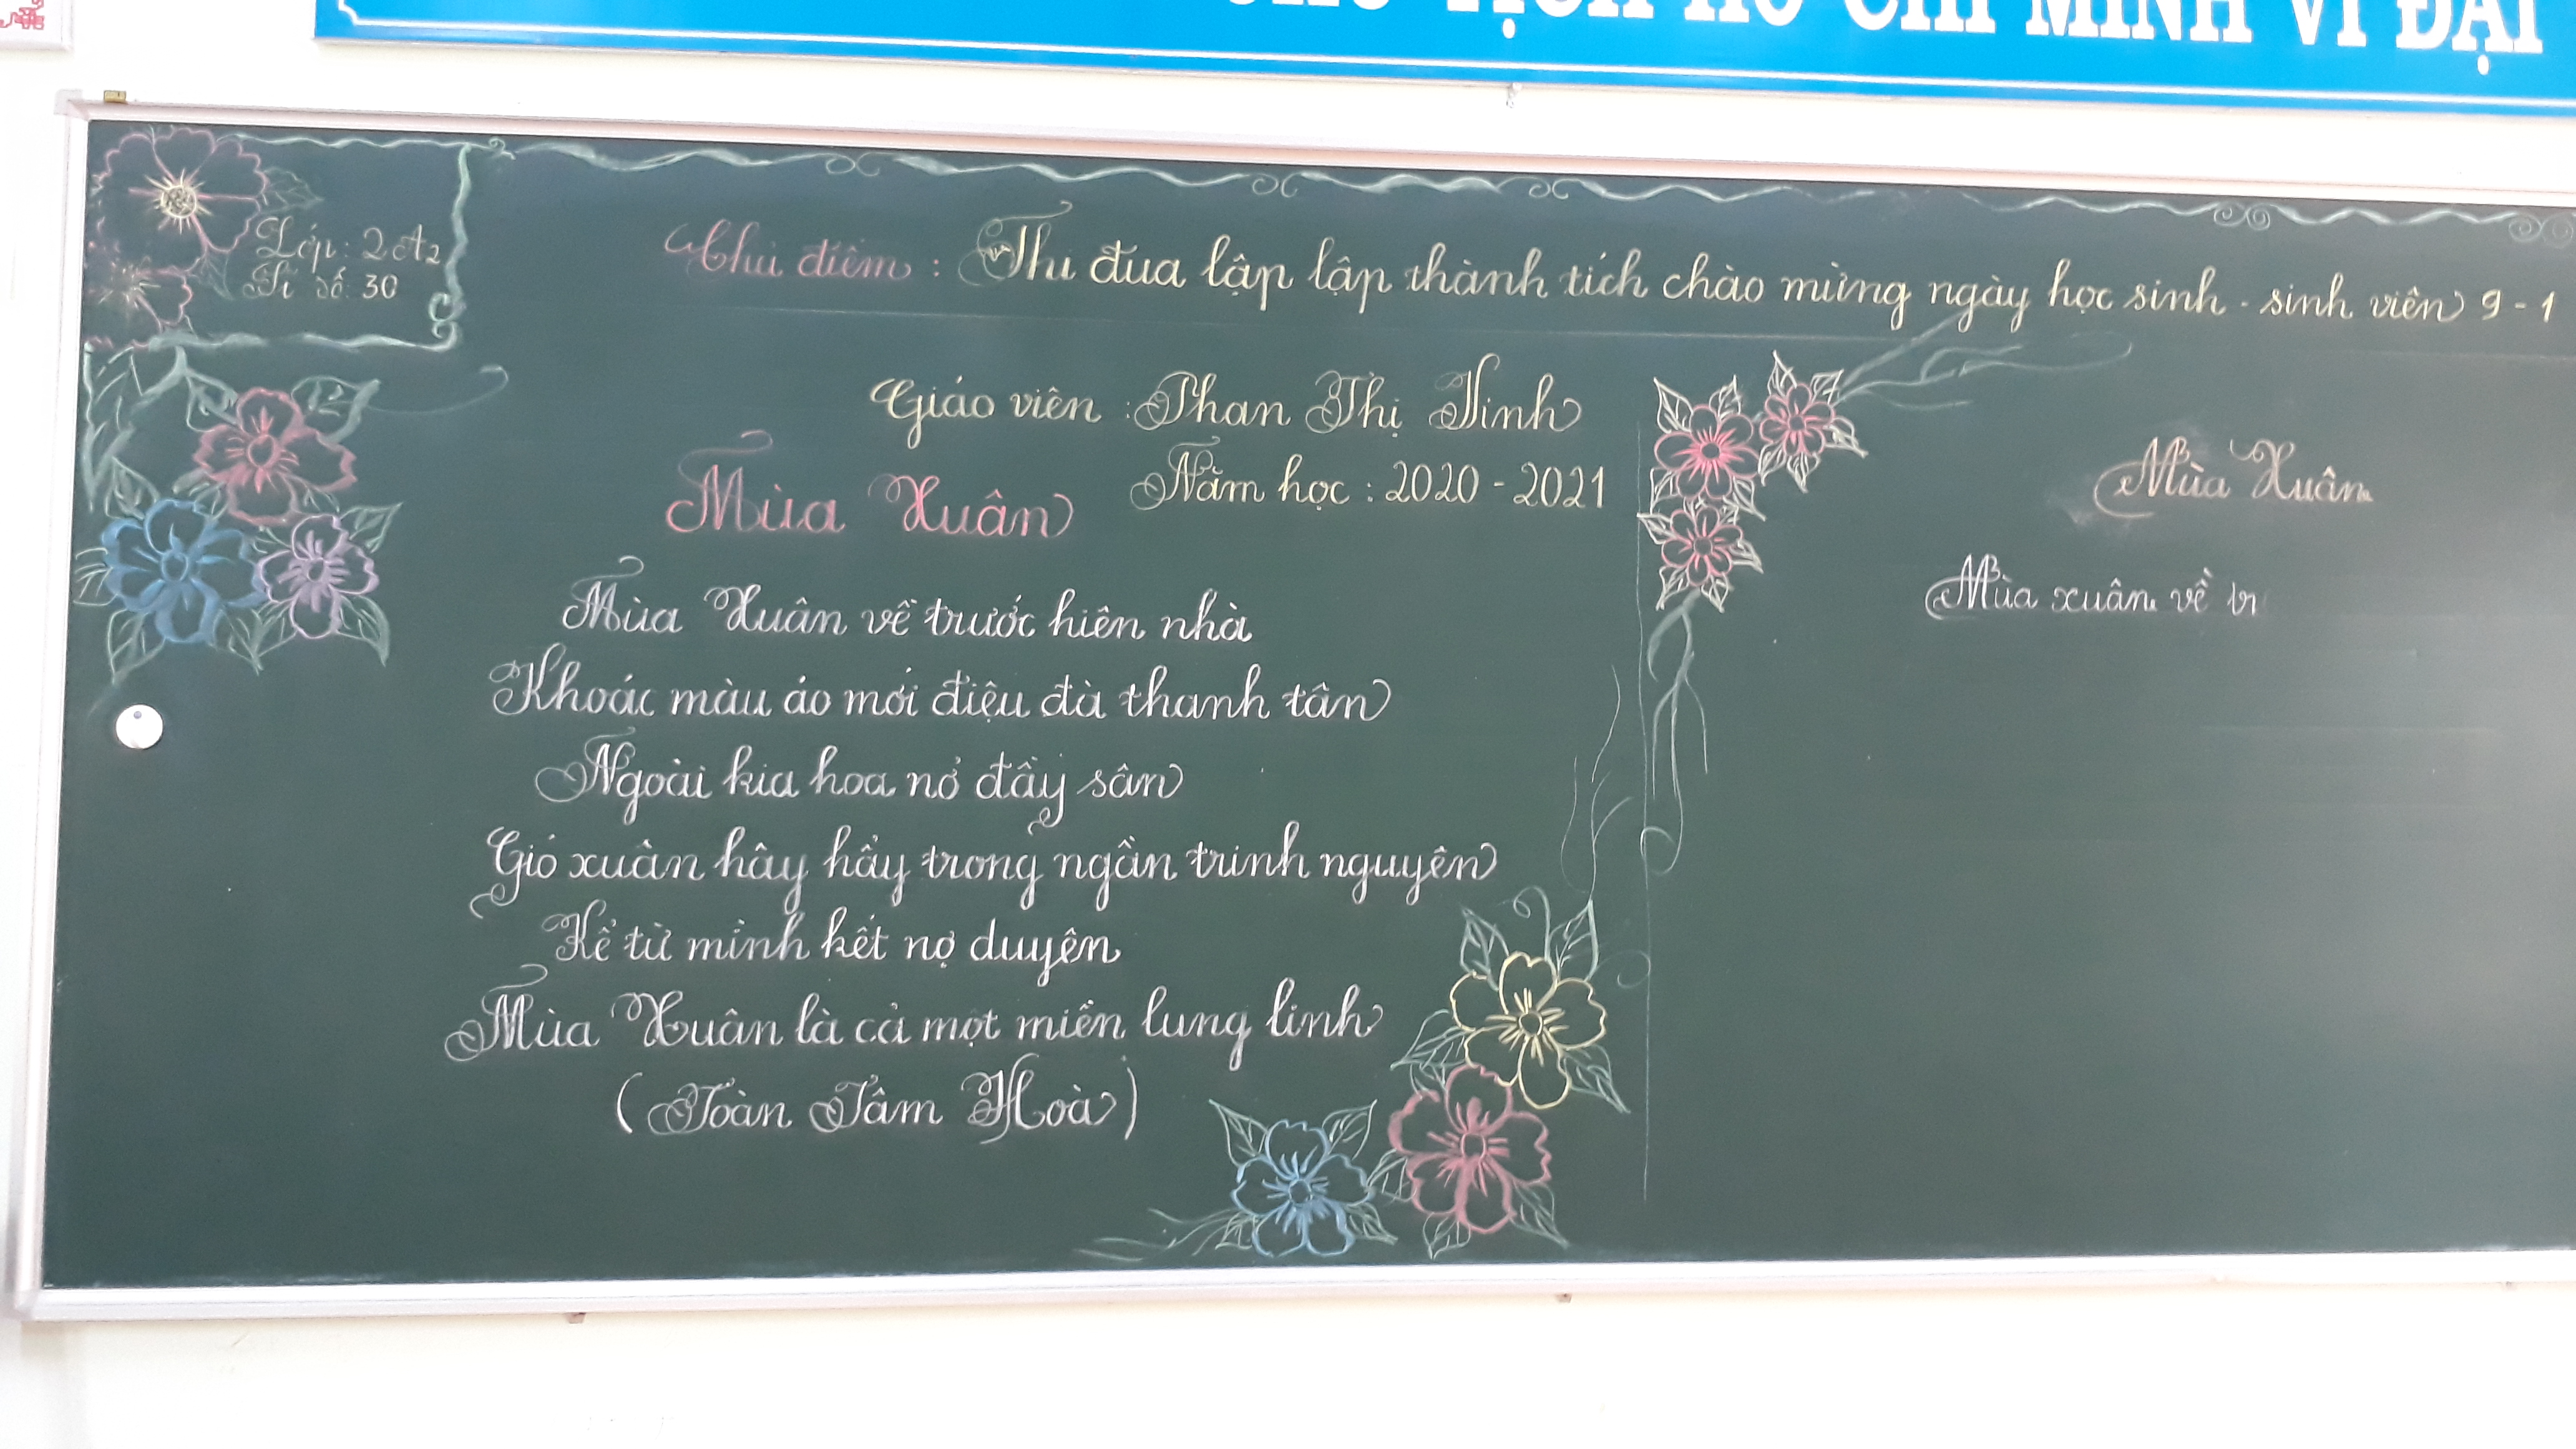 CHỦ TỊCH HỒ CHÍ MINH VĨ ĐẠI
Lớp: 2A2
Sĩ số: 30
Chủ điểm: Thi đua lập lập thành tích chào mừng ngày học sinh - sinh viên 9 - 1
Giáo viên: Phan Thị Kinh
Năm học: 2020 - 2021
Mùa Xuân
Mùa Xuân về trước hiên nhà
Khoác màu áo mới điệu đà thanh tân
Ngoài kia hoa nở đầy sân
Gió xuân hây hẩy trong ngần trinh nguyên
Kể từ mình kết nợ duyên
Mùa Xuân là cả một miền lung linh
(Toàn Tâm Hoà)
Mùa Xuân
Mùa xuân về tr